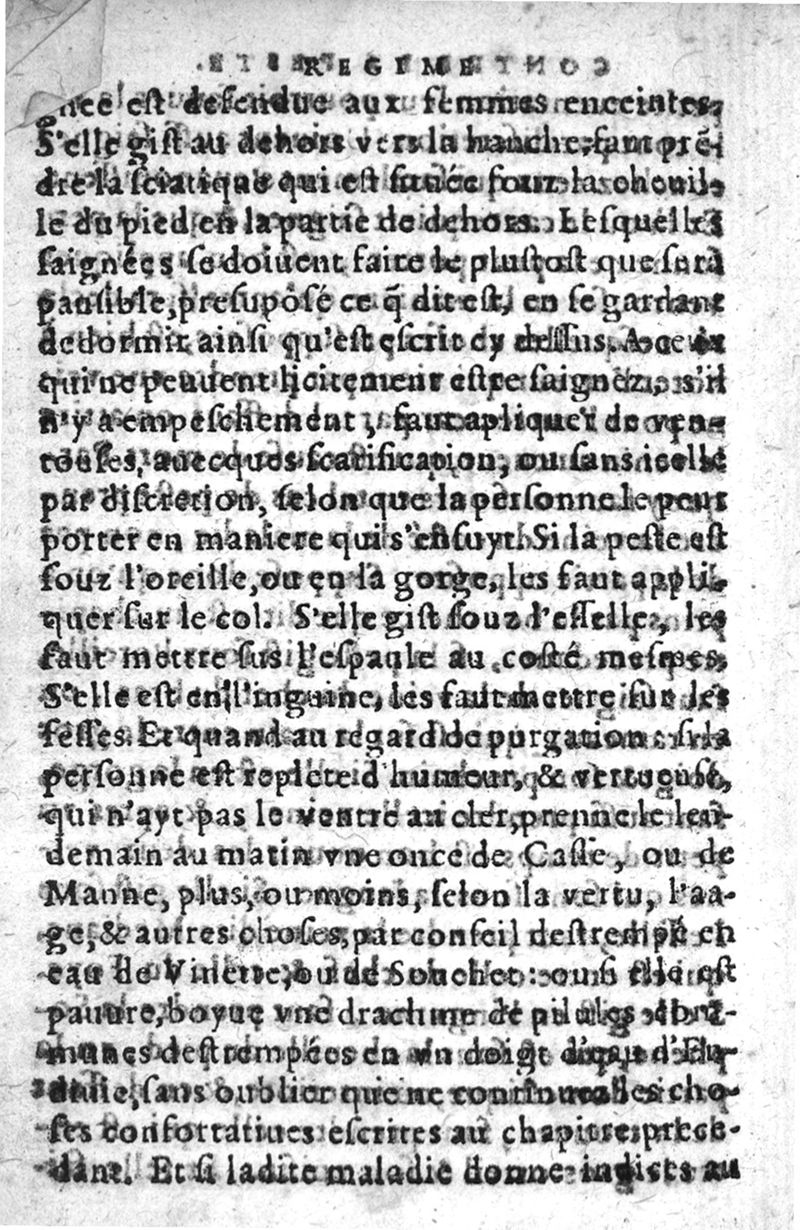 REGIME
gnee est defendue aux femmes enceintes.
S'elle gist au dehors vers la hanche, faut prē-
dre la sciatique qui est située souz la cheuil-
le du pied en la partie de dehors. Lesquelles
saignées se doiuent faire le plustost que sera
passible, presuposé ce q̃ dit est, en se gardant
de dormir ainsi qu'est escrit cy dessus. A ceux
qui ne peuuent licitement estre saignez, s'il
n'y a empeschement, faut apliquer de ven-
touses, auecques scarification, ou sans icelle
par discretion, selon que la personne le peut
porter en maniere qui s'ensuyt. Si la peste est
souz l'oreille, ou en la gorge, les faut appli-
quer sur le col. S'elle gist souz l'esselle, les
faut mettre sus l'espaule au costé mesmes.
S'elle est en l'inguine, les faut mettre sur les
fesses. Et quand au regard de purgation: si la
personne est replete d'humeur, & vertueuse,
qui n'ayt pas le ventre au cler, prenne le len-
demain au matin vne once de Casse, ou de
Manne, plus, ou moins, selon la vertu, l'aa-
ge, & autres choses, par conseil destrempé en
eau de Vinette, ou de Souchet: ou si elle est
pauure, boyue vne drachme de pilules
munes destrempées en vn doigt d'eau d'En-
diuie, sans oublier que ne continue les cho-
ses confortatiues escrites au chapitre prece-
dant. Et si ladite maladie donne indices au